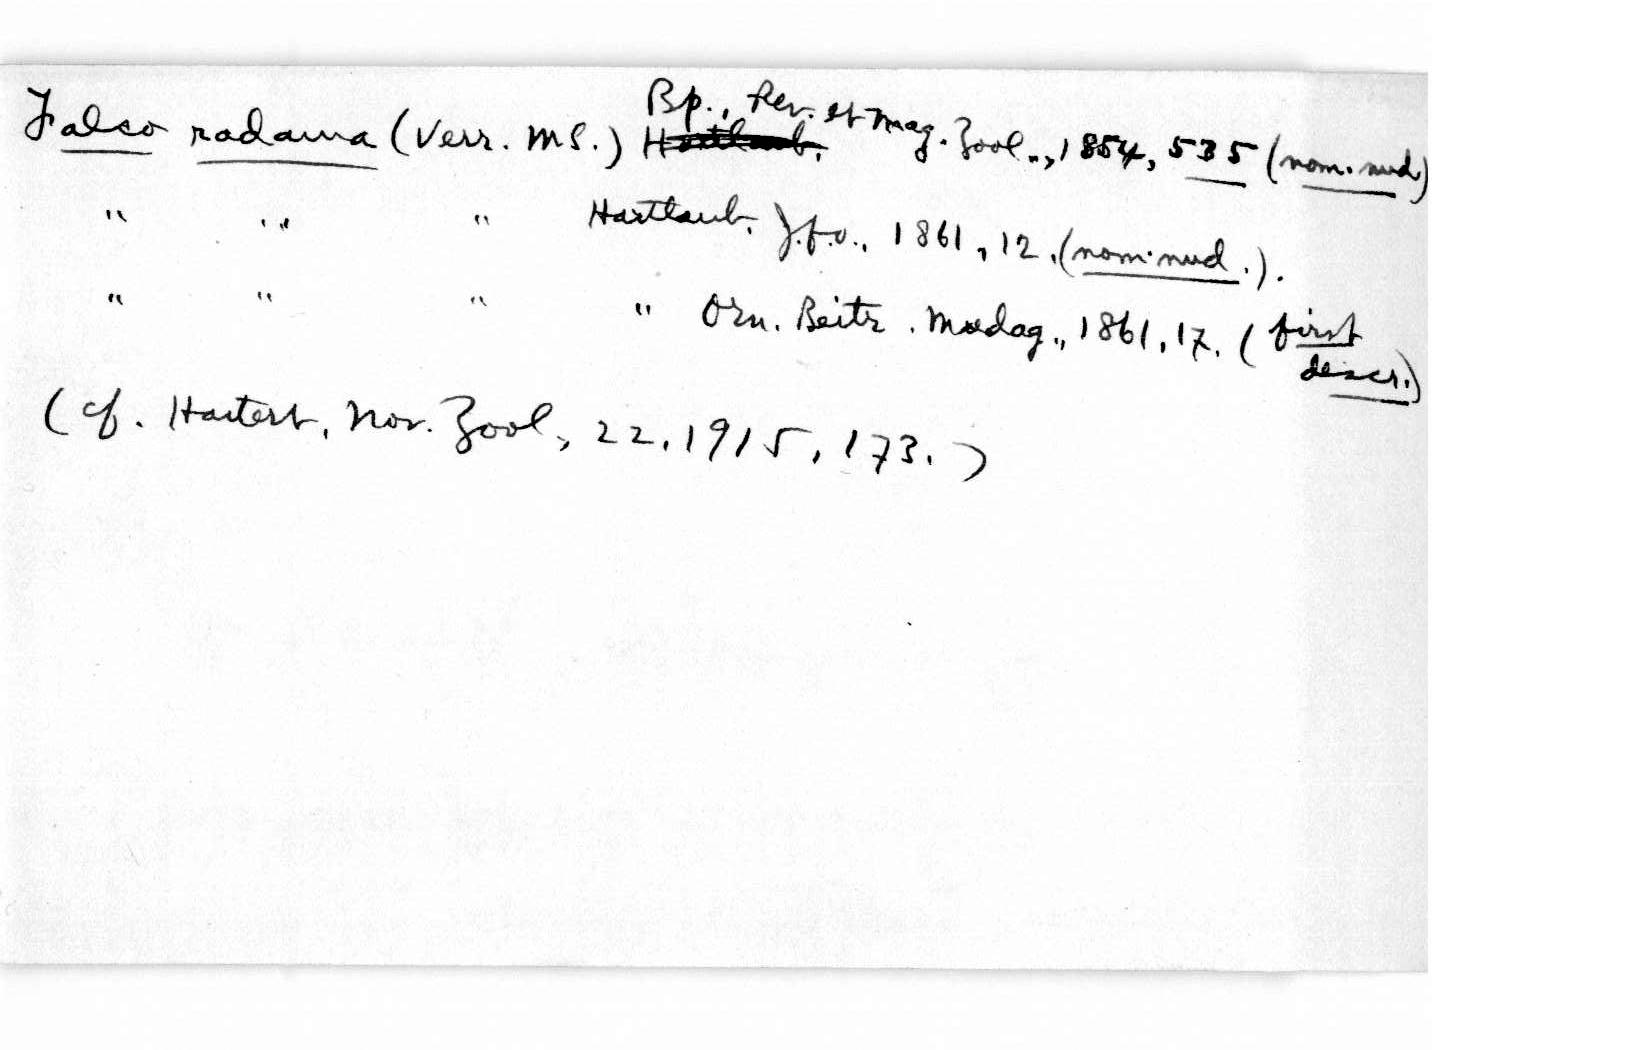 Falco radama (Verr. MS.) Hartlaub, Bp., Rev. et Mag. Zool., 1854, 535 (nom. nud.)
" " " Hartlaub, J.f.O., 1861, 12, (nom. nud.).
" " " " Orn. Beitr. Madag., 1861, 17. (first
descr.)
(cf. Hartert, Nov. Zool., 22, 1915, 173.)